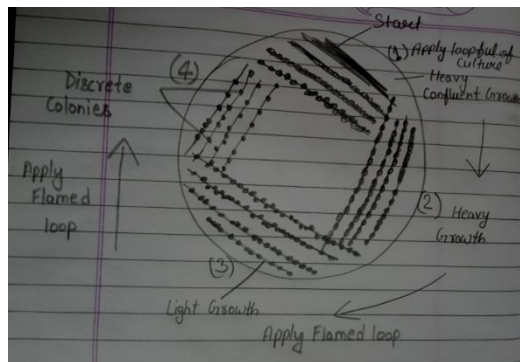 Start
(1) Apply loopful of
Culture
Heavy
Confluent Growth
(4)
Discrete
Colonies
Apply
Flamed
loop
(2)
Heavy
Growth
(3)
Light Growth
Apply Flamed loop